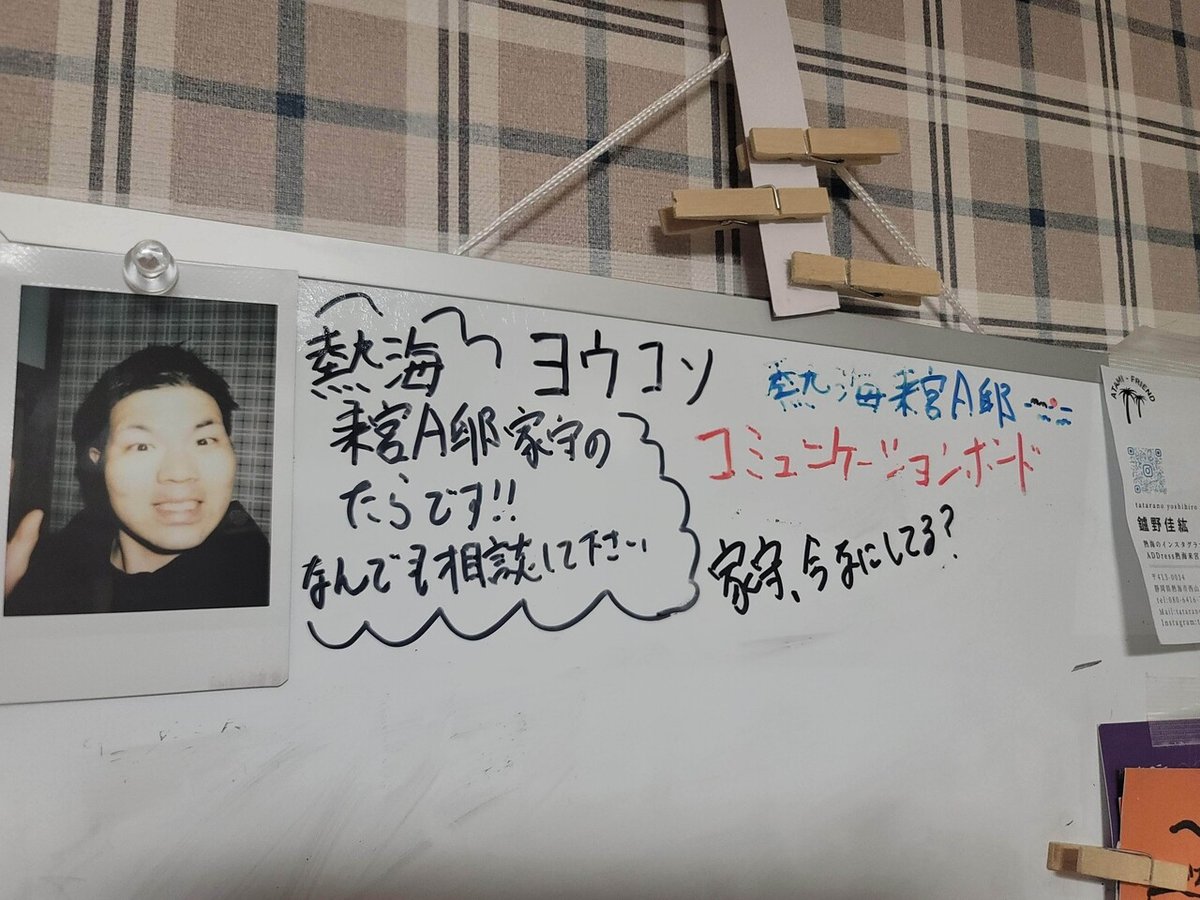 熱海へ ヨウコソ
来宮A邸家守の
たらです!!
なんでも相談して下さい
熱海来宮A邸
コミュニケーションボード
家守、今なにしてる?
ATAMI-FRIEND
tatarano.yoshihiro
鑪野佳紘
熱海のインスタグラ
ADDress熱海来宮
〒413-0034
静岡県熱海市西山
tel:080-6416-
Mail:tatarano
Instagram:t